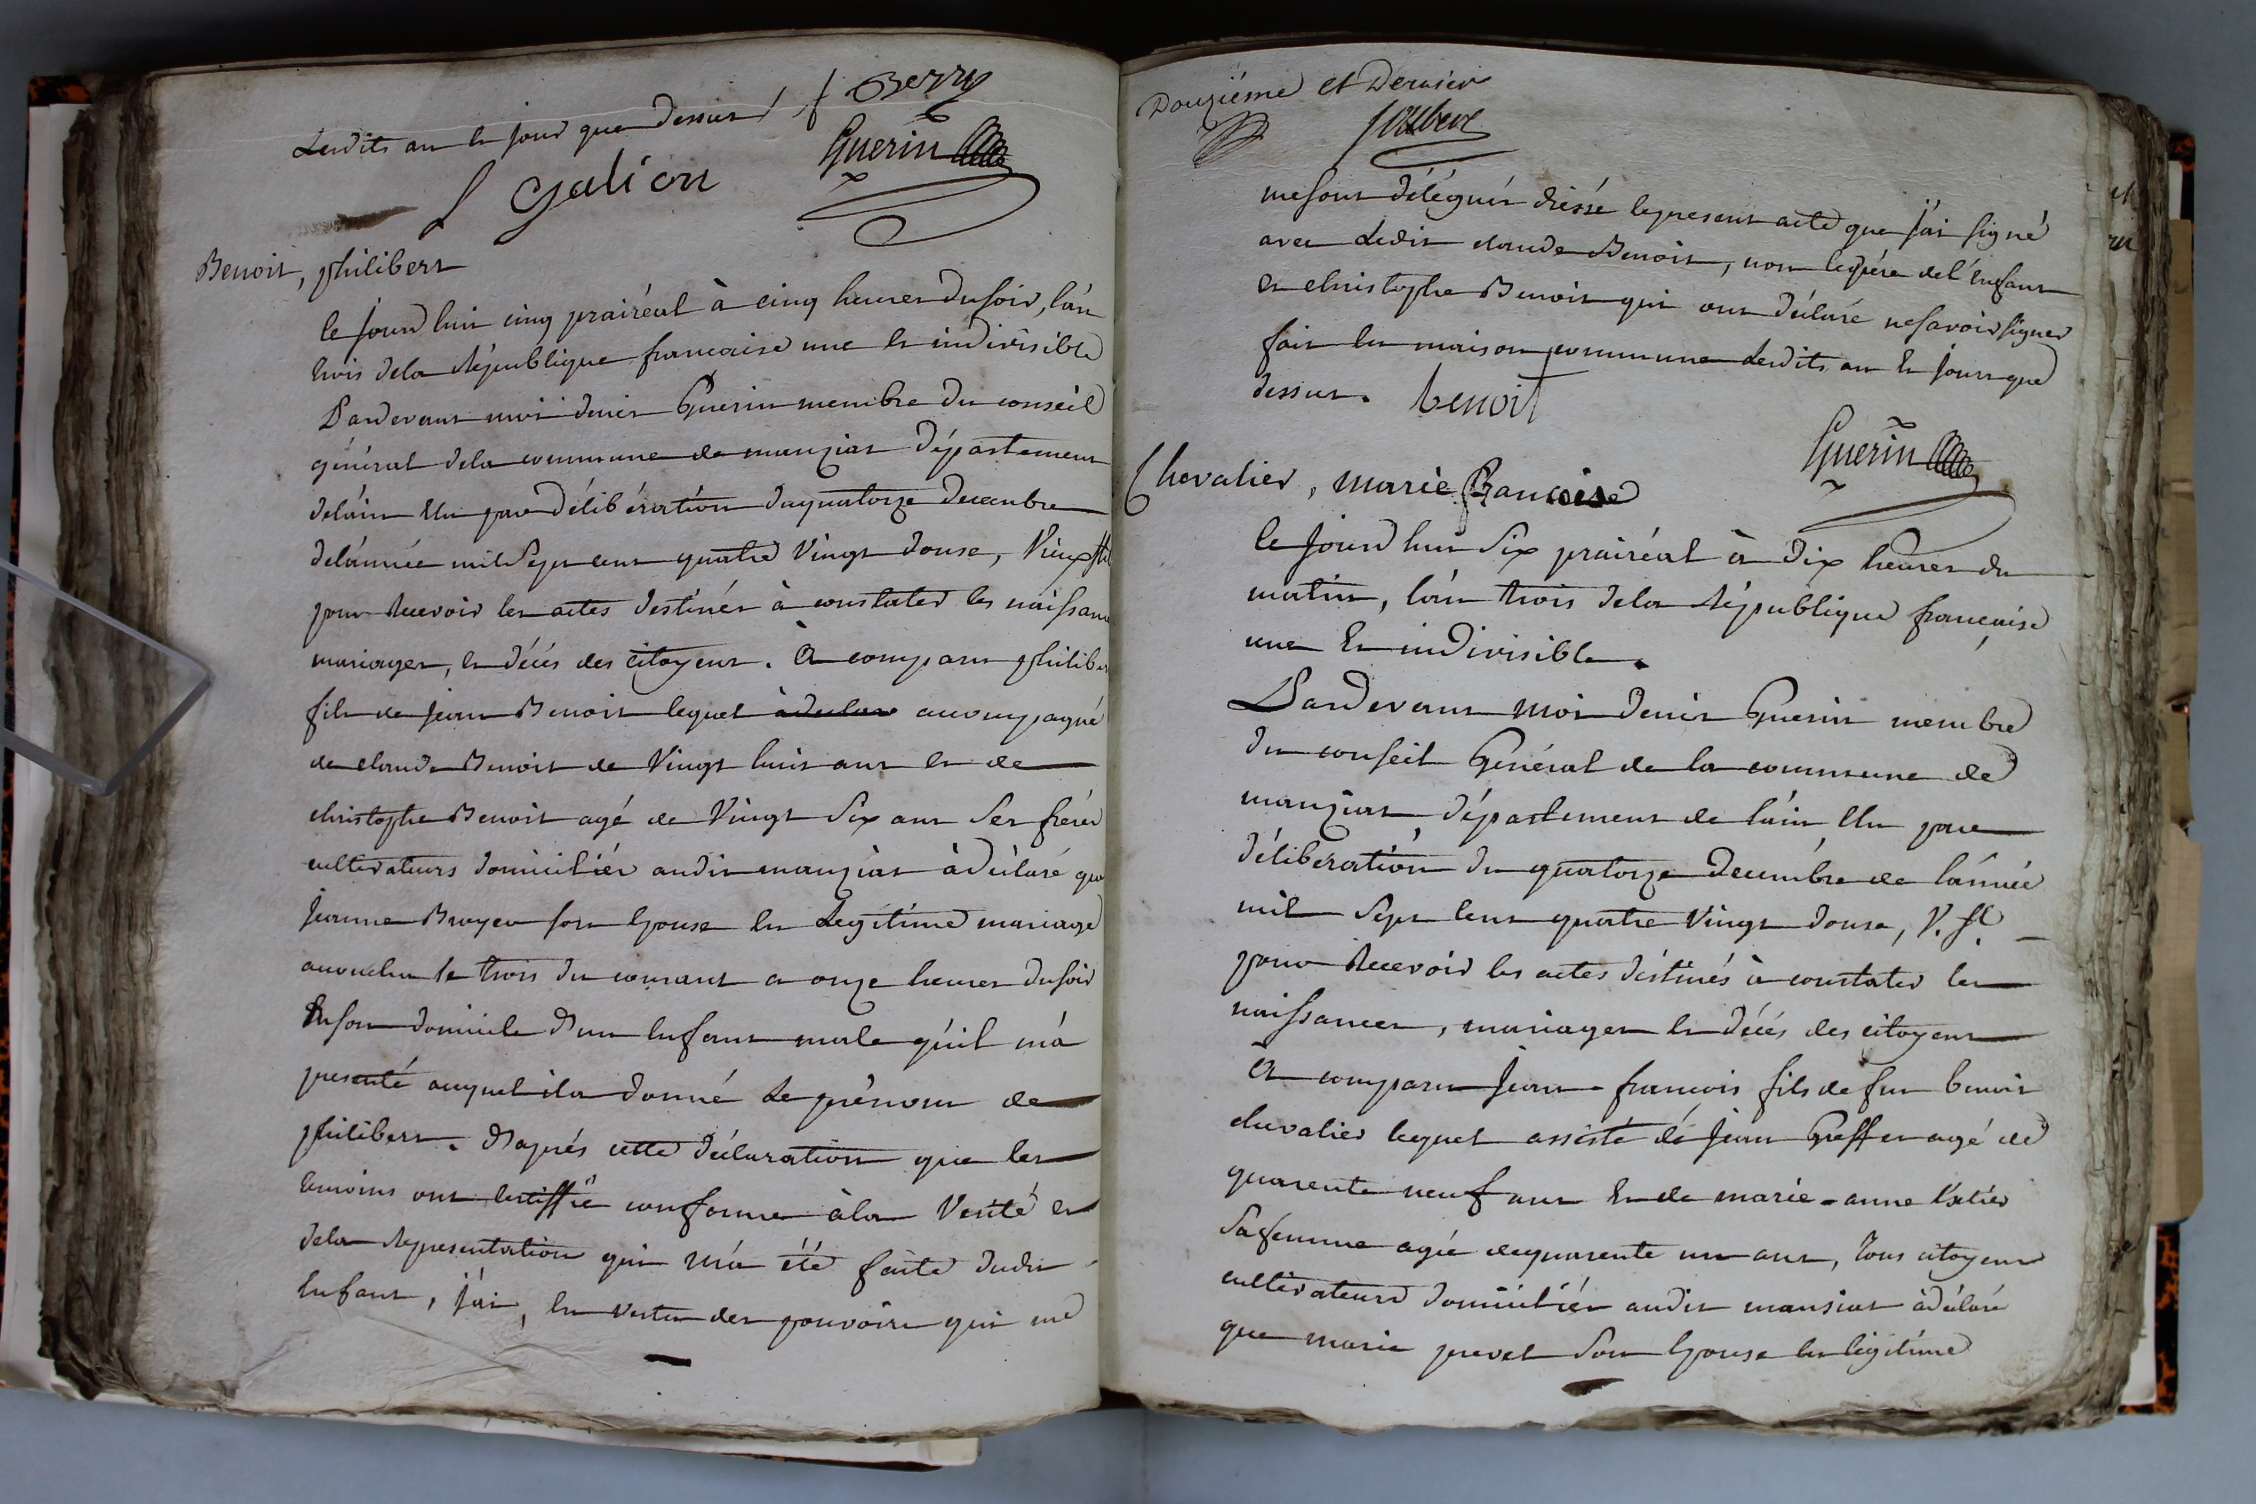 Lesdits an et jour que dessus f Berry
f Galion Guerin
Benoit, philibert
Ce jourd'hui cinq prairéal à cinq heures du soir, l'an
trois de la République francaise une et indivisible
Pardevant moi denis Guerin membre du conseil
général de la commune de manziat Département
de l'ain Elu par délibération du quatorze decembre
de l'année mil Sept cent quatre Vingt douse, Vieux Stil
pour Recevoir les actes destinés à constater les naissances
mariages, et décés des citoyens. A comparu philibert
fils de jean Benoit lequel à déclaré accompagné
de claude Benoit de Vingt huit ans et de
christophe Benoit agé de Vingt Six ans Ses fréres
cultivateurs domiciliés audit manziat à déclaré que
jeanne Broyer son Epouse en Legitime mariage
accouchée le trois du courant a onze heures du soir
En son domicile d'un Enfant male qu'il m'à
presenté auquel il a donné Le prénom de
philibert. D'aprés cette déclaration que les
temoins ont certiffié conforme à la Verité et
de la Representation qui m'à été faite dudit
Enfant, j'ai, En vertu des pouvoirs qui me
Douziéme et Dernier
Joubert
me sont délégués dréssé le present acte que j'ai signé
avec Ledit claude Benoit, non le pére de l'Enfant
et christophe Benoit qui ont déclaré ne savoir signer
fait En maison commune Lesdits an et jour que
dessus. benoit
Guerin
Chevalier, marie francoise
Ce jourd'hui Six prairéal à dix heures du
matin, l'an trois de la République francaise
une Et indivisible.
Pardevant moi denis Guerin membre
du conseil Général de la commune de
manziat département de l'ain Elu par
délibération du quatorze decembre de l'année
mil Sept Cent quatre Vingt douse, V. St.
pour Recevoir les actes déstinés à constater les
naissances, mariages et décés des citoyens
A comparu jean-francois fils de feu benoit
chevalier lequel assisté de jean Greffet agé de
quarente neuf ans Et de marie-anne
Sa femme agée de quarente un ans, Tous citoyens
cultivateurs domiciliés audit mansiat à déclaré
que marie prevel Son Epouse en légitime